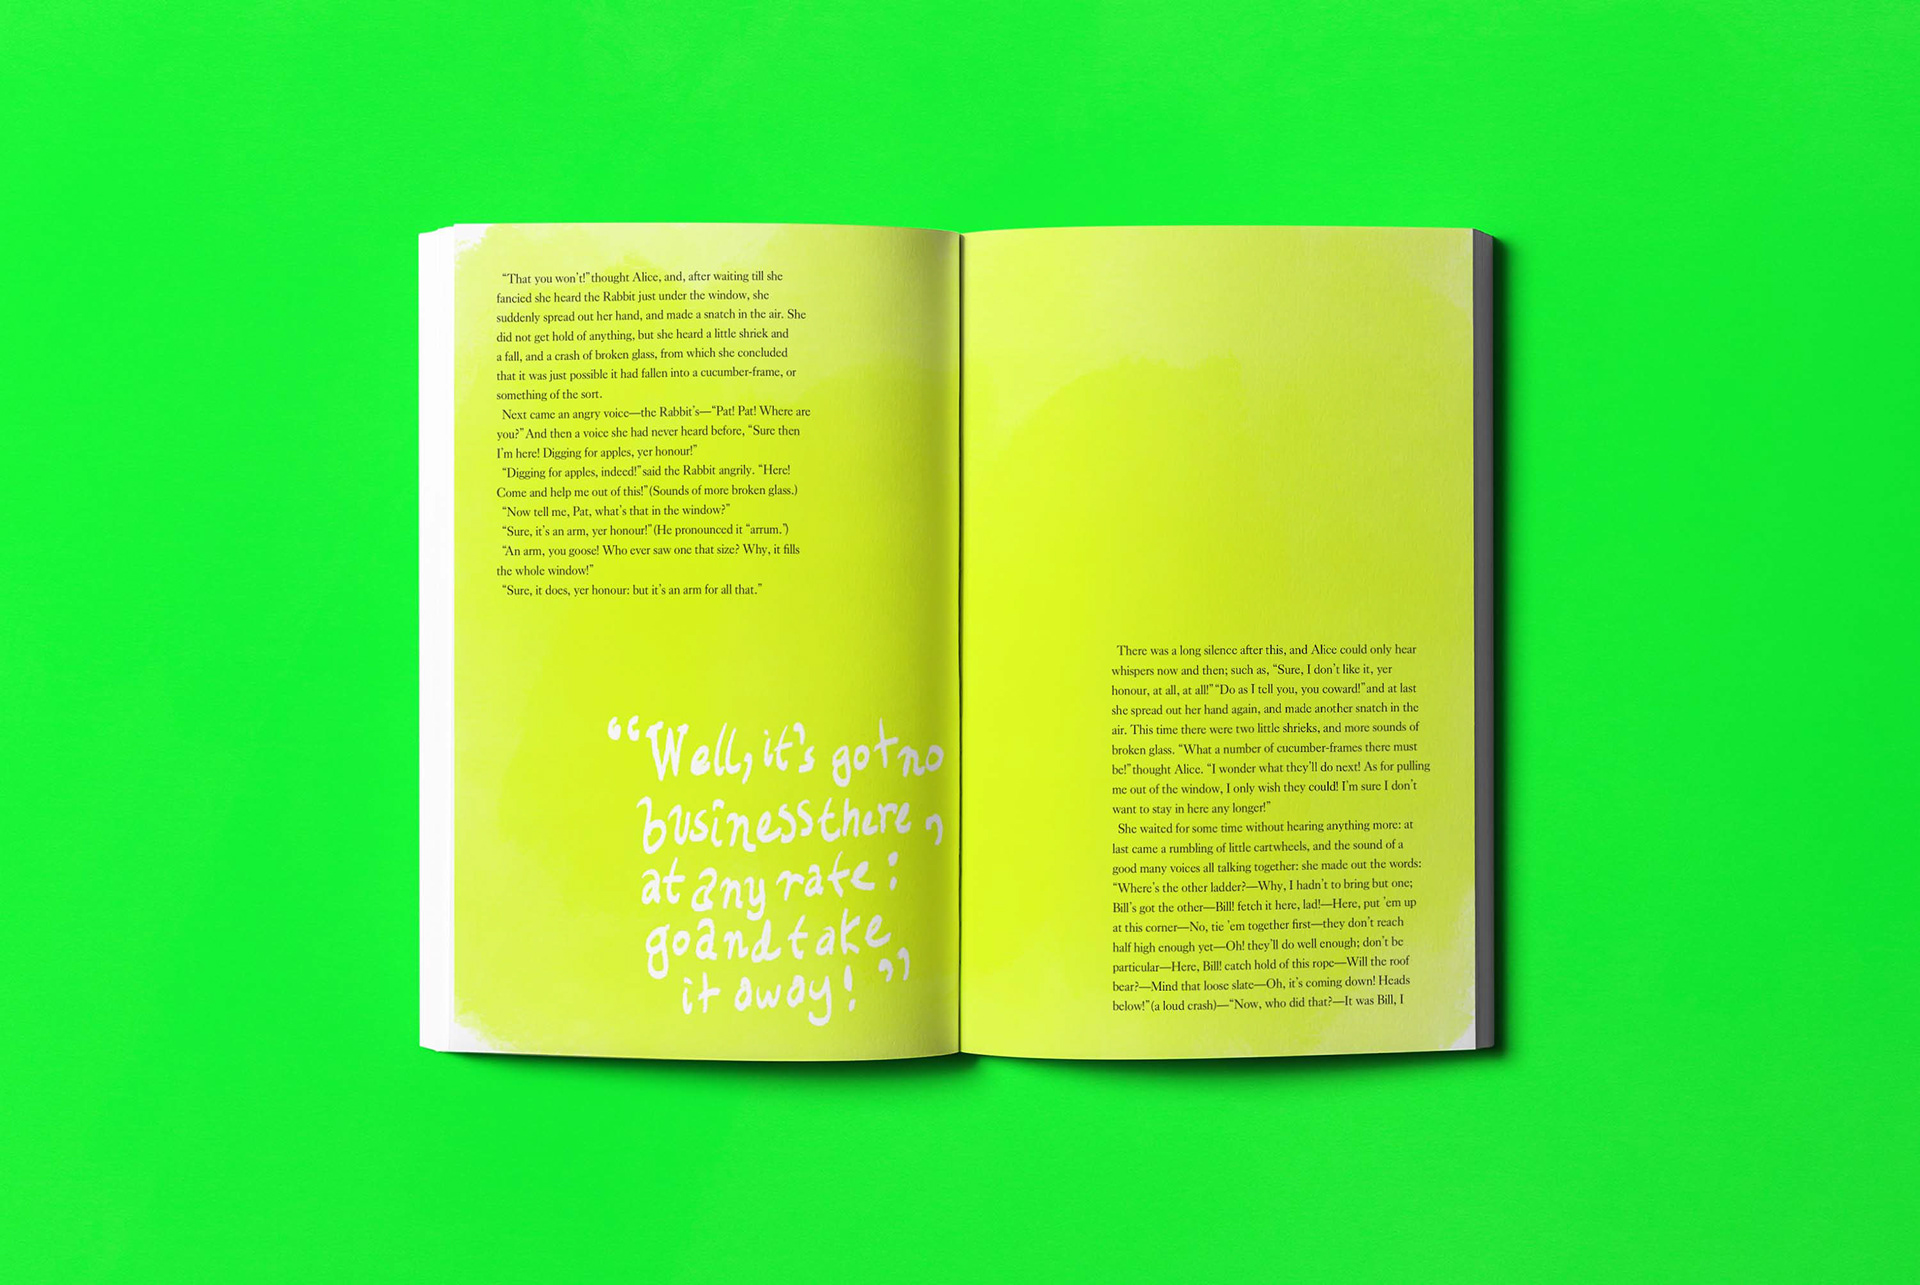 “That you won’t!” thought Alice, and, after waiting till she
fancied she heard the Rabbit just under the window, she
suddenly spread out her hand, and made a snatch in the air. She
did not get hold of anything, but she heard a little shriek and
a fall, and a crash of broken glass, from which she concluded
that it was just possible it had fallen into a cucumber-frame, or
something of the sort.
Next came an angry voice—the Rabbit’s—“Pat! Pat! Where are
you?” And then a voice she had never heard before, “Sure then
I’m here! Digging for apples, yer honour!”
“Digging for apples, indeed!” said the Rabbit angrily. “Here!
Come and help me out of this!” (Sounds of more broken glass.)
“Now tell me, Pat, what’s that in the window?”
“Sure, it’s an arm, yer honour!” (He pronounced it “arrum.’)
“An arm, you goose! Who ever saw one that size? Why, it fills
the whole window!”
“Sure, it does, yer honour: but it’s an arm for all that.”
“Well, it’s got no
business there,
at any rate:
go and take
it away!”
There was a long silence after this, and Alice could only hear
whispers now and then; such as, “Sure, I don’t like it, yer
honour, at all, at all!” “Do as I tell you, you coward!” and at last
she spread out her hand again, and made another snatch in the
air. This time there were two little shrieks, and more sounds of
broken glass. “What a number of cucumber-frames there must
be!” thought Alice. “I wonder what they’ll do next! As for pulling
me out of the window, I only wish they could! I’m sure I don’t
want to stay in here any longer!”
She waited for some time without hearing anything more: at
last came a rumbling of little cartwheels, and the sound of a
good many voices all talking together: she made out the words:
“Where’s the other ladder?—Why, I hadn’t to bring but one;
Bill’s got the other—Bill! fetch it here, lad!—Here, put ’em up
at this corner—No, tie ’em together first—they don’t reach
half high enough yet—Oh! they’ll do well enough; don’t be
particular—Here, Bill! catch hold of this rope—Will the roof
bear?—Mind that loose slate—Oh, it’s coming down! Heads
below!” (a loud crash)—“Now, who did that?—It was Bill, I